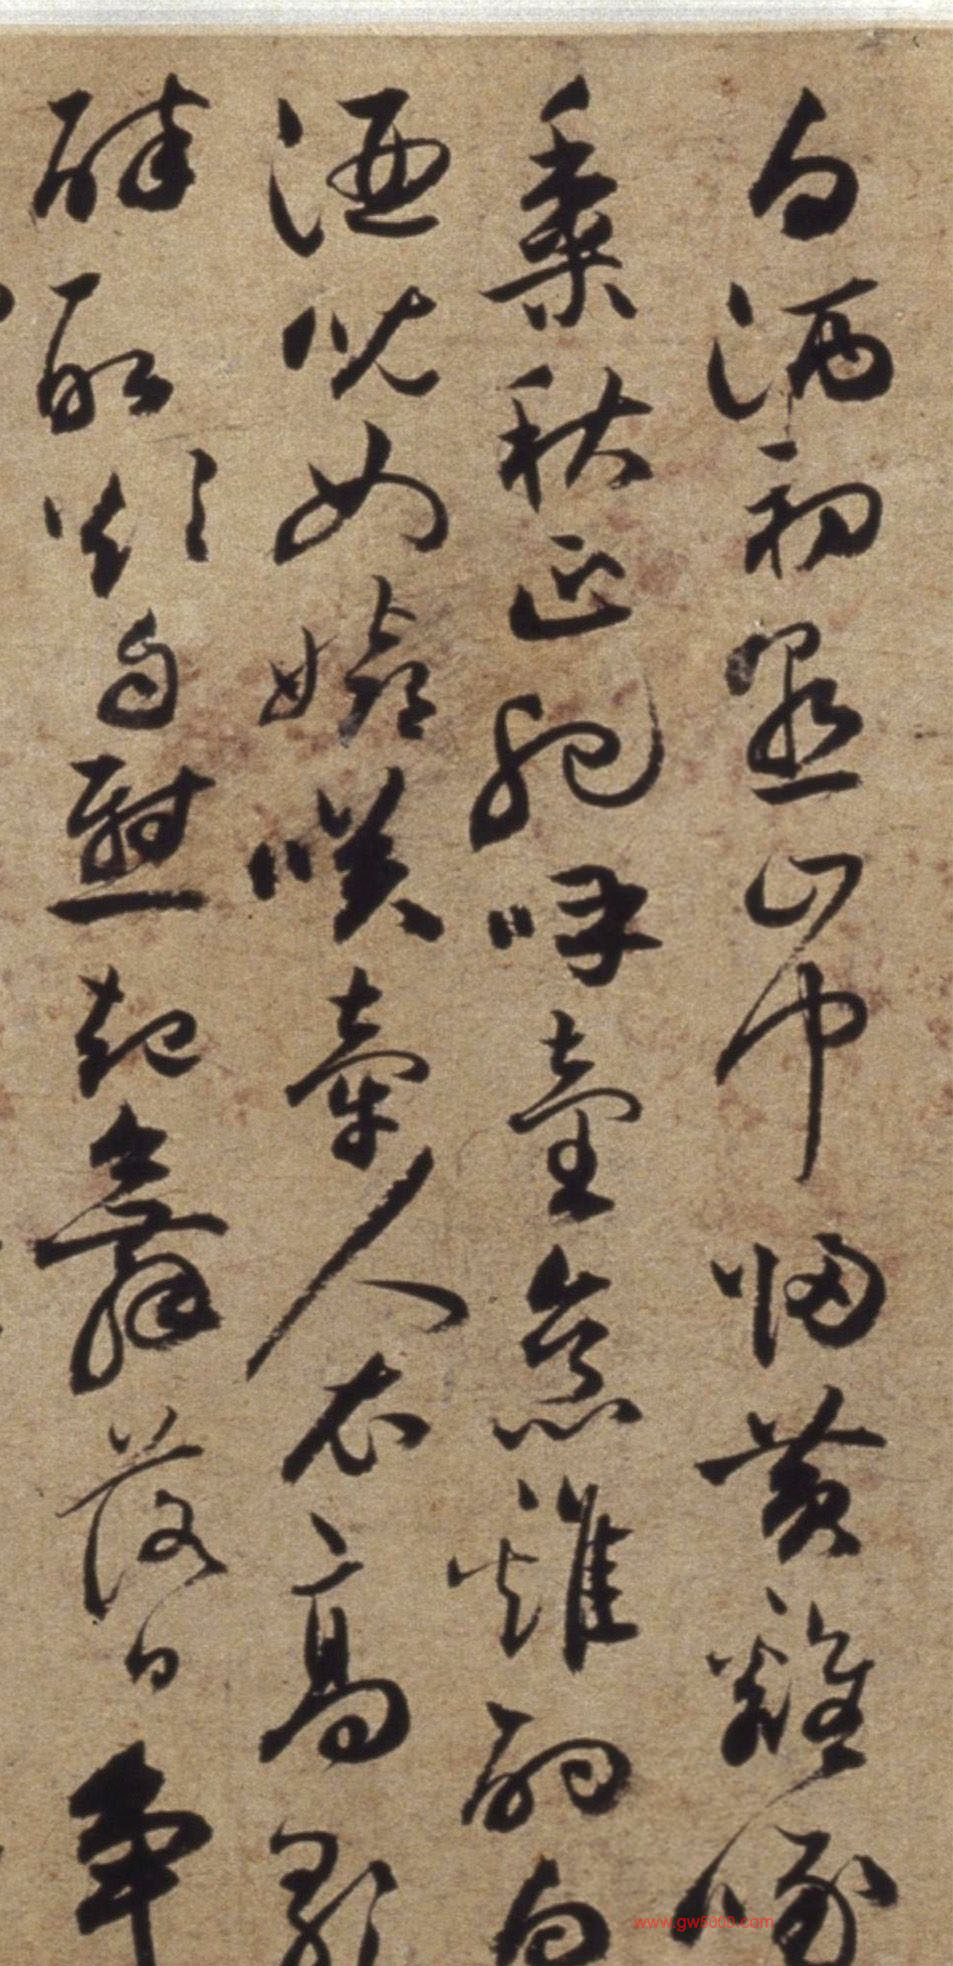 白酒初熟山中歸黃雞啄
黍秋正肥呼童烹雞酌白
酒兒女嬉咲牽人衣高歌
醉取欲自慰起舞落日爭
www.gw5000.com